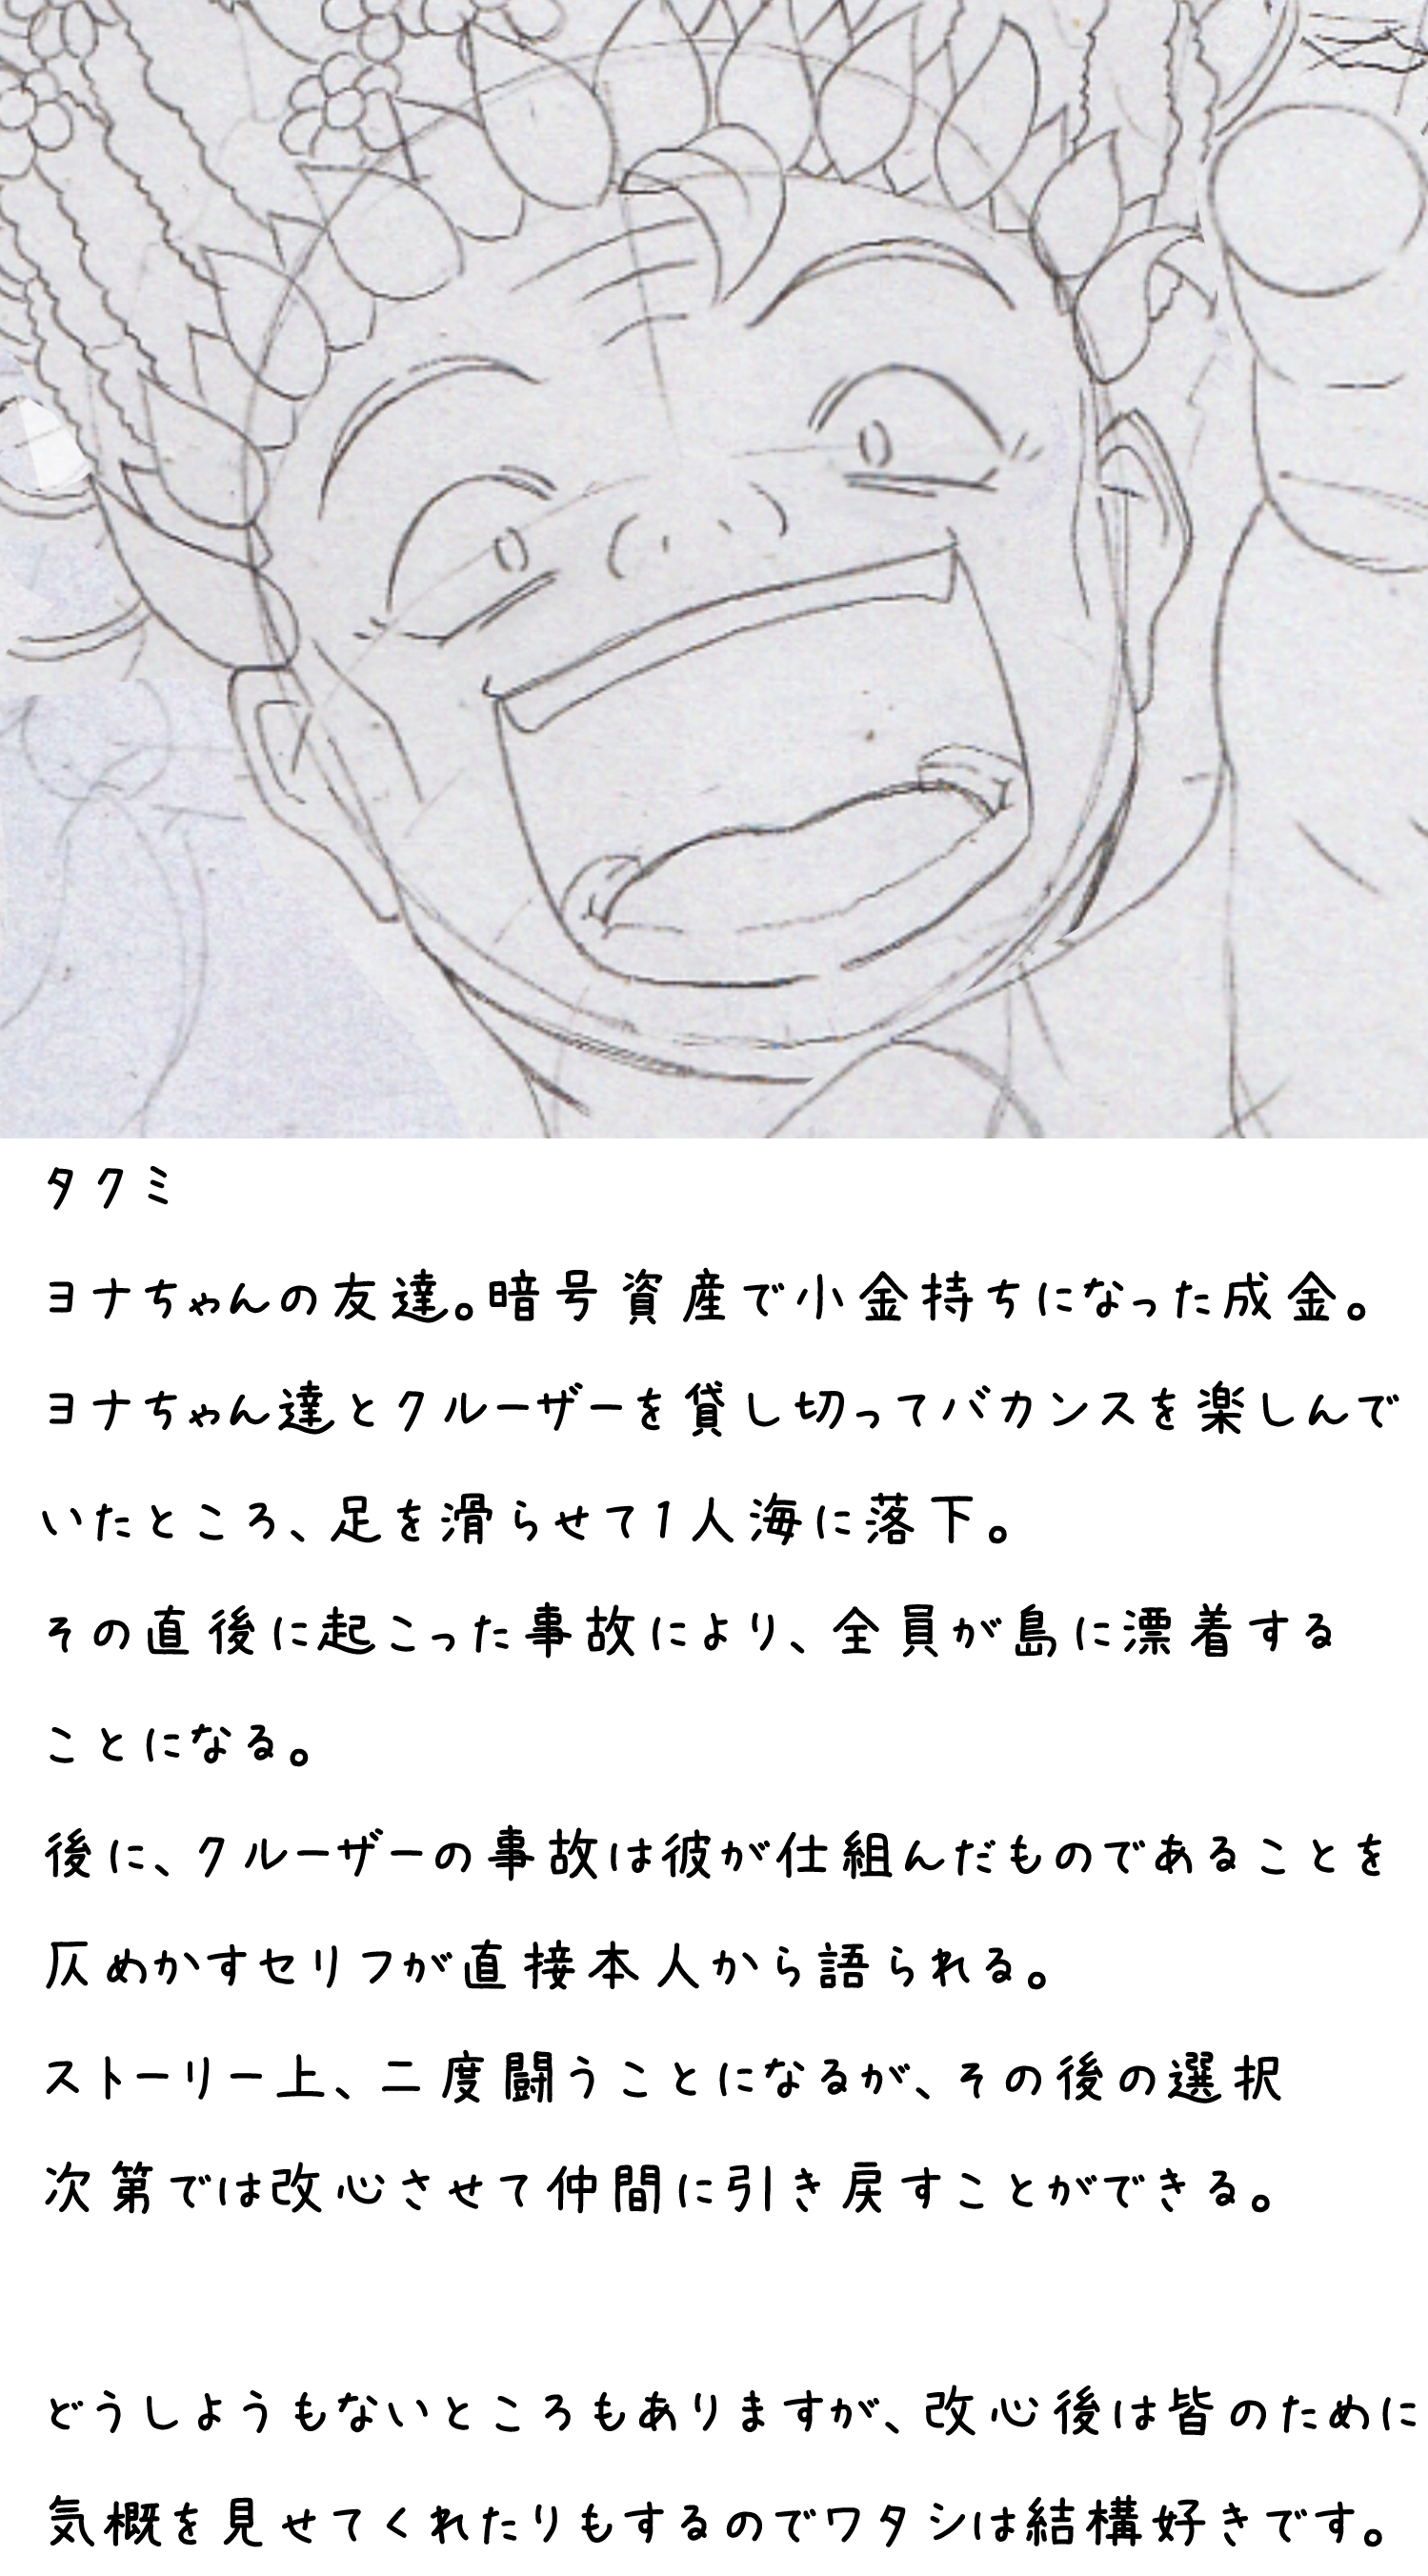 タクミ
ヨナちゃんの友達。暗号資産で小金持ちになった成金。
ヨナちゃん達とクルーザーを貸し切ってバカンスを楽しんで
いたところ、足を滑らせて1人海に落下。
その直後に起こった事故により、全員が島に漂着する
ことになる。
後に、クルーザーの事故は彼が仕組んだものであることを
仄めかすセリフが直接本人から語られる。
ストーリー上、二度闘うことになるが、その後の選択
次第では改心させて仲間に引き戻すことができる。
どうしようもないところもありますが、改心後は皆のために
気概を見せてくれたりもするのでワタシは結構好きです。